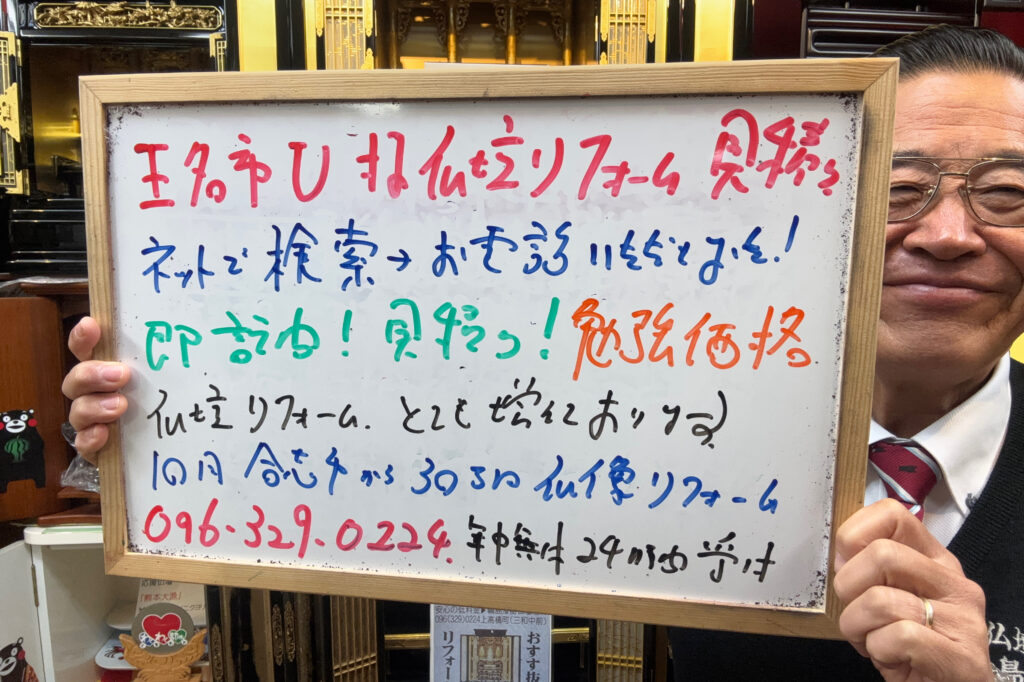 玉名市 U様 仏壇リフォーム 見積り
ネットで検索→お電話いただきました!
即訪問!見積り!勉強価格
仏壇リフォーム、とても増えております
10月 合志市から30さい 仏像リフォーム
096-329-0224. 年中無休 24時間受付
安心の低料金▶
096(329)0224上高橋町(三和中前)
おすす
リフォー
「熊本大浪」
仏壇